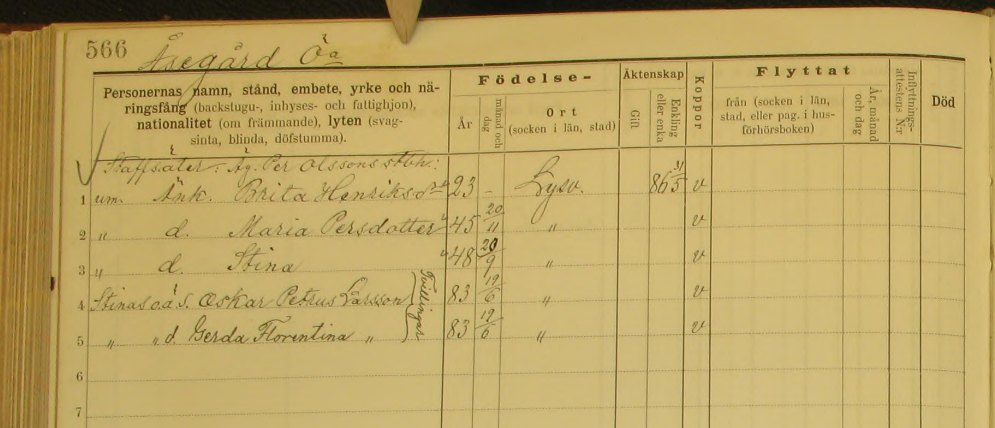 566 Åsegård Öa
Personernas namn, stånd, embete, yrke och näringsfång (backstugu-, inhyses- och fattighjon), nationalitet (om främmande), lyten (svagsinta, blinda, döfstumma).
Födelse-
År
månad och dag
Ort (socken i län, stad)
Äktenskap
Gift
Enkling eller enka
Koppor
Flyttat
från (socken i län, stad, eller pag. i husförhörsboken)
År, månad och dag
Inflyttnings-attestens N:r
Död
Staffsäter: Äg. Per Olssons stbh:
1 um. Änk. Brita Henriksdr 23 – Lysv. 86 31/5 v
2 " d. Maria Persdotter 45 20/11 " v
3 " d. Stina " 48 20/9 " v
4 Stinas o.ä. s. Oskar Petrus Larsson 83 19/6 " v
5 " " d. Gerda Florentina " 83 19/6 " v
Tvillingar
6
7